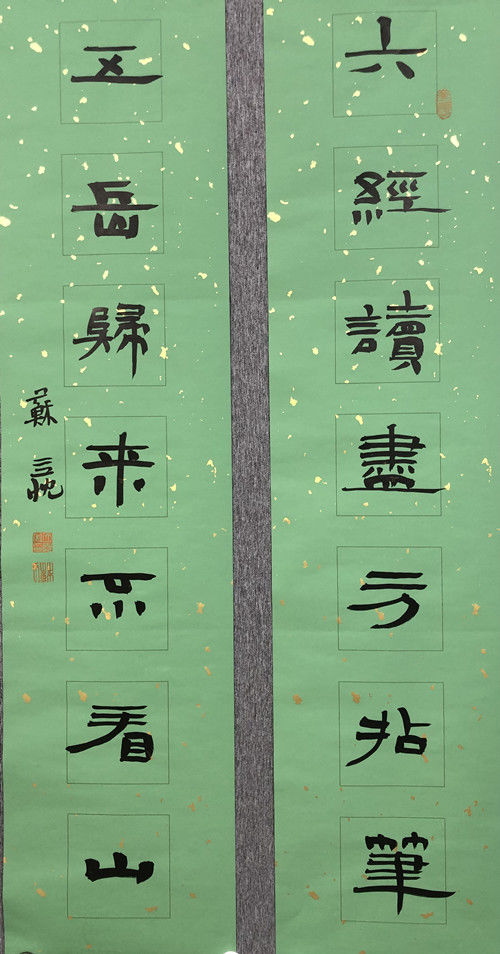 六經讀盡方拈筆
五岳歸来不看山
蘇